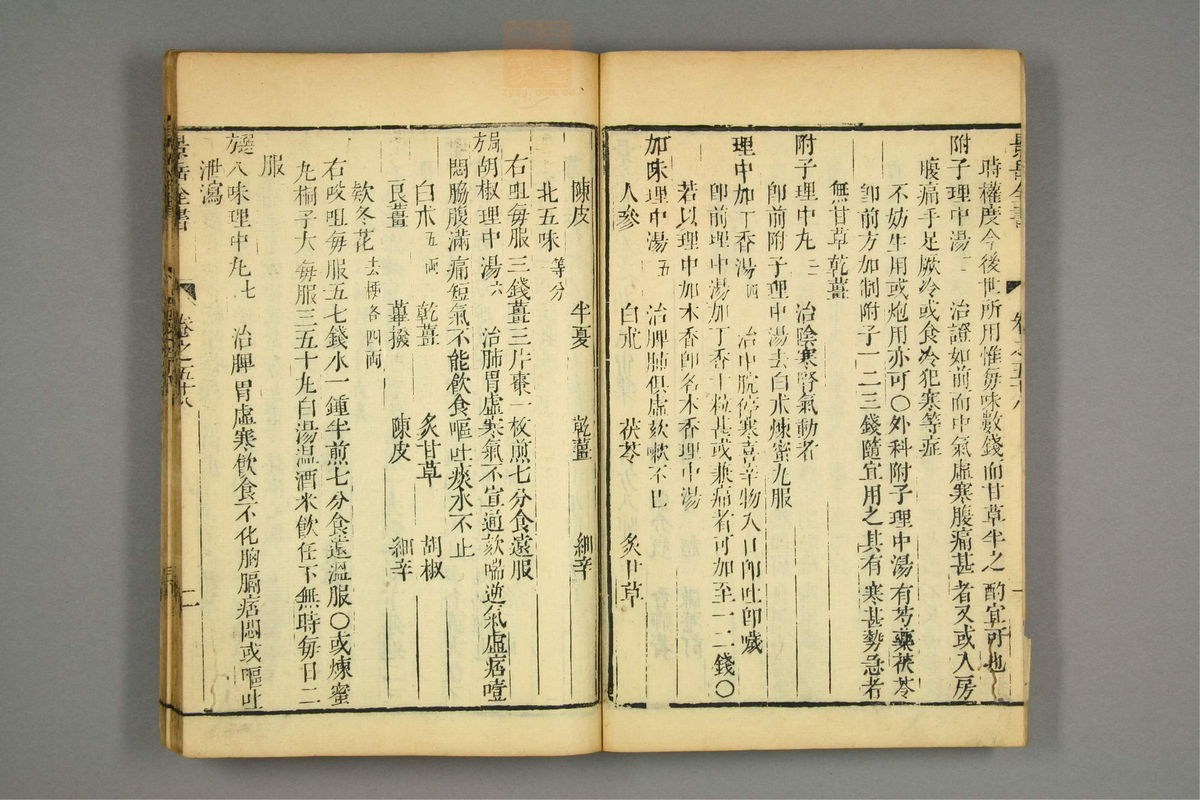 時權度今後世所用惟每味數錢而甘草半之 酌宜可也
附子理中湯二 治證如前而中氣虛寒腹痛甚者又或入房
腹痛手足厥冷或食冷犯寒等症
即前方加制附子一二三錢隨宜用之其有寒甚勢急者
不妨生用或炮用亦可○外科附子理中湯有芍藥茯苓
無甘草乾薑
附子理中丸三 治陰寒腎氣動者
即前附子理中湯去白朮煉蜜丸服
理中加丁香湯四 治中脘停寒喜辛物入口即吐即噦
即前理中湯加丁香十粒甚或兼痛者可加至一二錢○
若以理中加木香即名木香理中湯
加味理中湯五 治脾肺俱虛欬嗽不已
人參 白朮 茯苓 炙甘草
景岳全書 卷之五十八
陳皮 半夏 乾薑 細辛
北五味等分
右㕮咀每服三錢薑三片棗一枚煎七分食遠服
局方胡椒理中湯六 治肺胃虛寒氣不宣通欬喘逆氣虛痞噎
悶脇腹滿痛短氣不能飲食嘔吐痰水不止
白朮五兩 乾薑 炙甘草 胡椒
良薑 蓽撥 陳皮 細辛
款冬花去梗各四兩
右㕮咀每服五七錢水一鍾半煎七分食遠溫服○或煉蜜
丸桐子大每服三五十丸白湯温酒米飲任下無時每日二
服
選方八味理中丸七 治脾胃虛寒飲食不化胸膈痞悶或嘔吐
泄瀉
景岳全書 卷之五十八 二